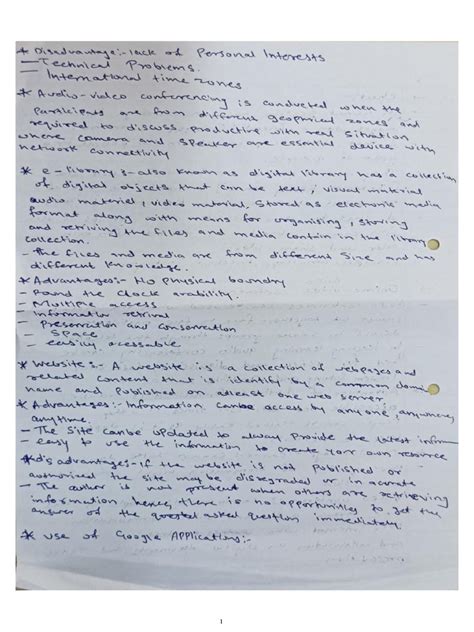 * Disadvantage:- lack of Personal Interests
— Technical Problems.
— International time zones
* Audio-video conferencing is conducted when the
participats are from different geophrical zones and
required to discuss productive with real sitnation
where camera and speaker are essential device with
network connectivity
* e-library :- also known as digital library has a collection
of digital objects that can be text, visual material
audio material, video material, stored as electronic media
format along with means for organising, storing
and retriving the files and media contain in the library
collection.
- The files and media are from different size and has
different knowledge.
* Advantages:- No physical boundry
- Round the clock avability.
- Multiple access
- Information retrival
- Preservation and conservation
- Space
- easily accessable.
* Website:- A website is a collection of webpages and
related content that is identify by a common domain
name and Published on atleast one web server
* Advantages:- Information canbe access by any one, anywhere,
anytime.
- The site canbe updated to always Provide the latest inform
- easy to use the information to create your own resource
* disadvantages:- if the website is not Published or
authorized the site may be disregraded or in accurate
- The author is not present when others are retrieving
information hence, there is no opportunities to get the
answer of the asked question immediately.
* use of Google Applications:-
1